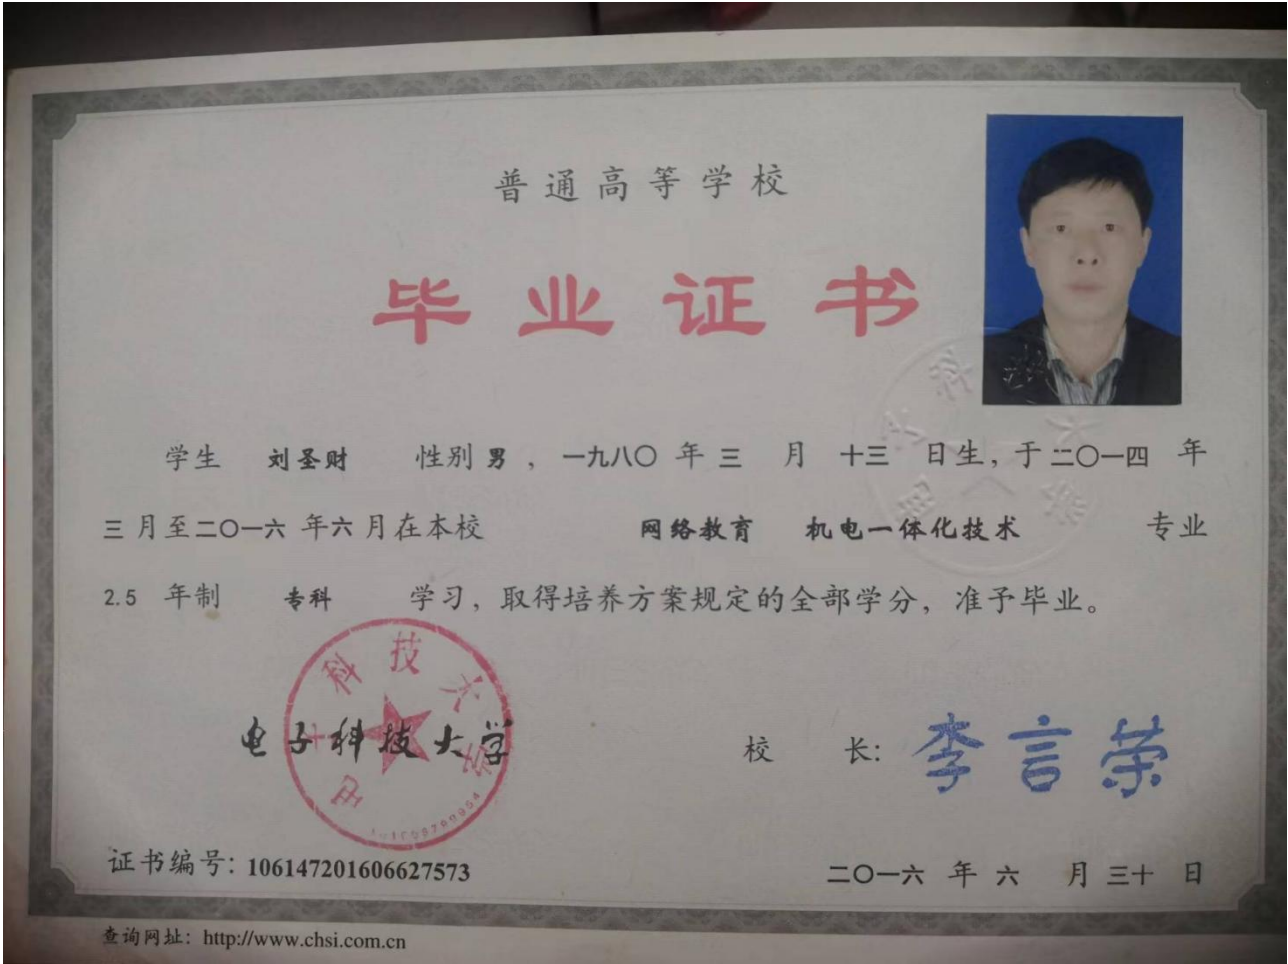 普通高等学校
毕业证书
学生 刘圣财 性别 男 ，一九八〇 年 三 月 十三 日生，于 二〇一四 年
三 月至 二〇一六 年 六 月在本校 网络教育 机电一体化技术 专业
2.5 年制 专科 学习，取得培养方案规定的全部学分，准予毕业。
电子科技大学
电子科技大学
校 长：李言荣
证书编号：106147201606627573
二〇一六 年 六 月 三十 日
查询网址：http://www.chsi.com.cn